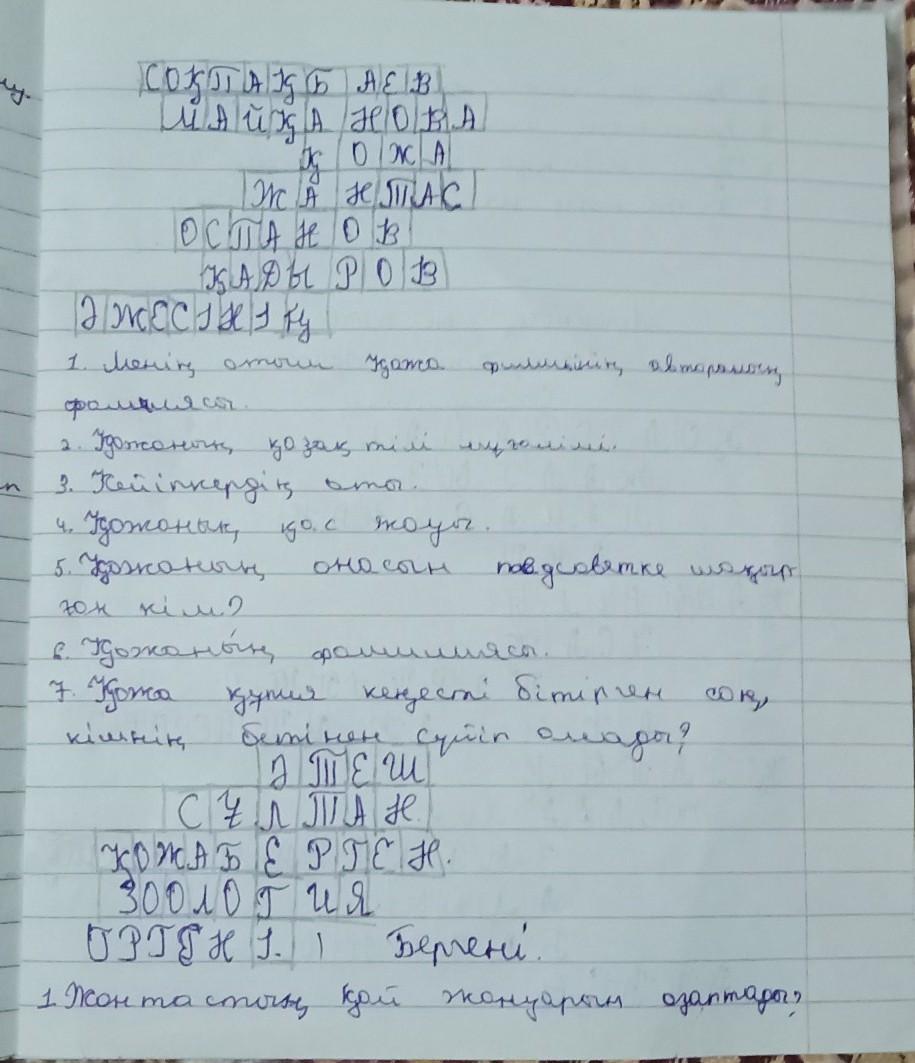 СОҚПАҚБАЕВ
МАЙҚАНОВА
ҚОЖА
ЖАНТАС
ОСПАНОВ
ҚАДЫРОВ
ӘЖЕСІНІҢ
1. Менің атым Қожа фильмінің авторының
фамилясы.
2. Қожаның қазақ тілі мұғалімі.
3. Кейіпкердің аты.
4. Қожаның қас жауы.
5. Қожаның анасын педсоветке шақыр
ған кім?
6. Қожаның фамилиясы.
7. Қожа құпия кеңесті бітірген соң,
кімнің бетінен сүйіп алады?
ӘТЕШ
СҰЛТАН
ҚОЖАБЕРГЕН.
ЗООЛОГИЯ
1. Жантастың қай жануарын азаптады?